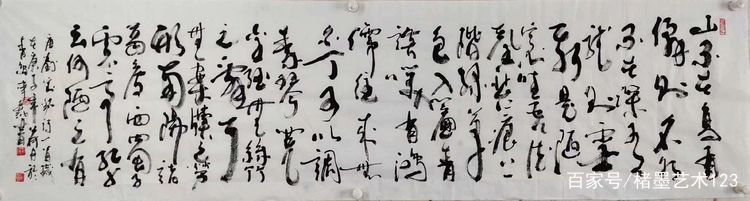 山不在高有
仙则名水
不在深有
龙则灵
斯是陋
室唯吾德
馨苔痕上
階绿草
色入簾青
谈笑有鸿
儒往来無
白丁可以调
素琴閲
金经無絲竹
之乱耳
無案牍之劳
形南陽諸
葛廬西蜀子
雲亭孔子
云何陋之有
唐刘禹锡诗一首歲
在庚子年荷月於
百家号/楮墨艺术123